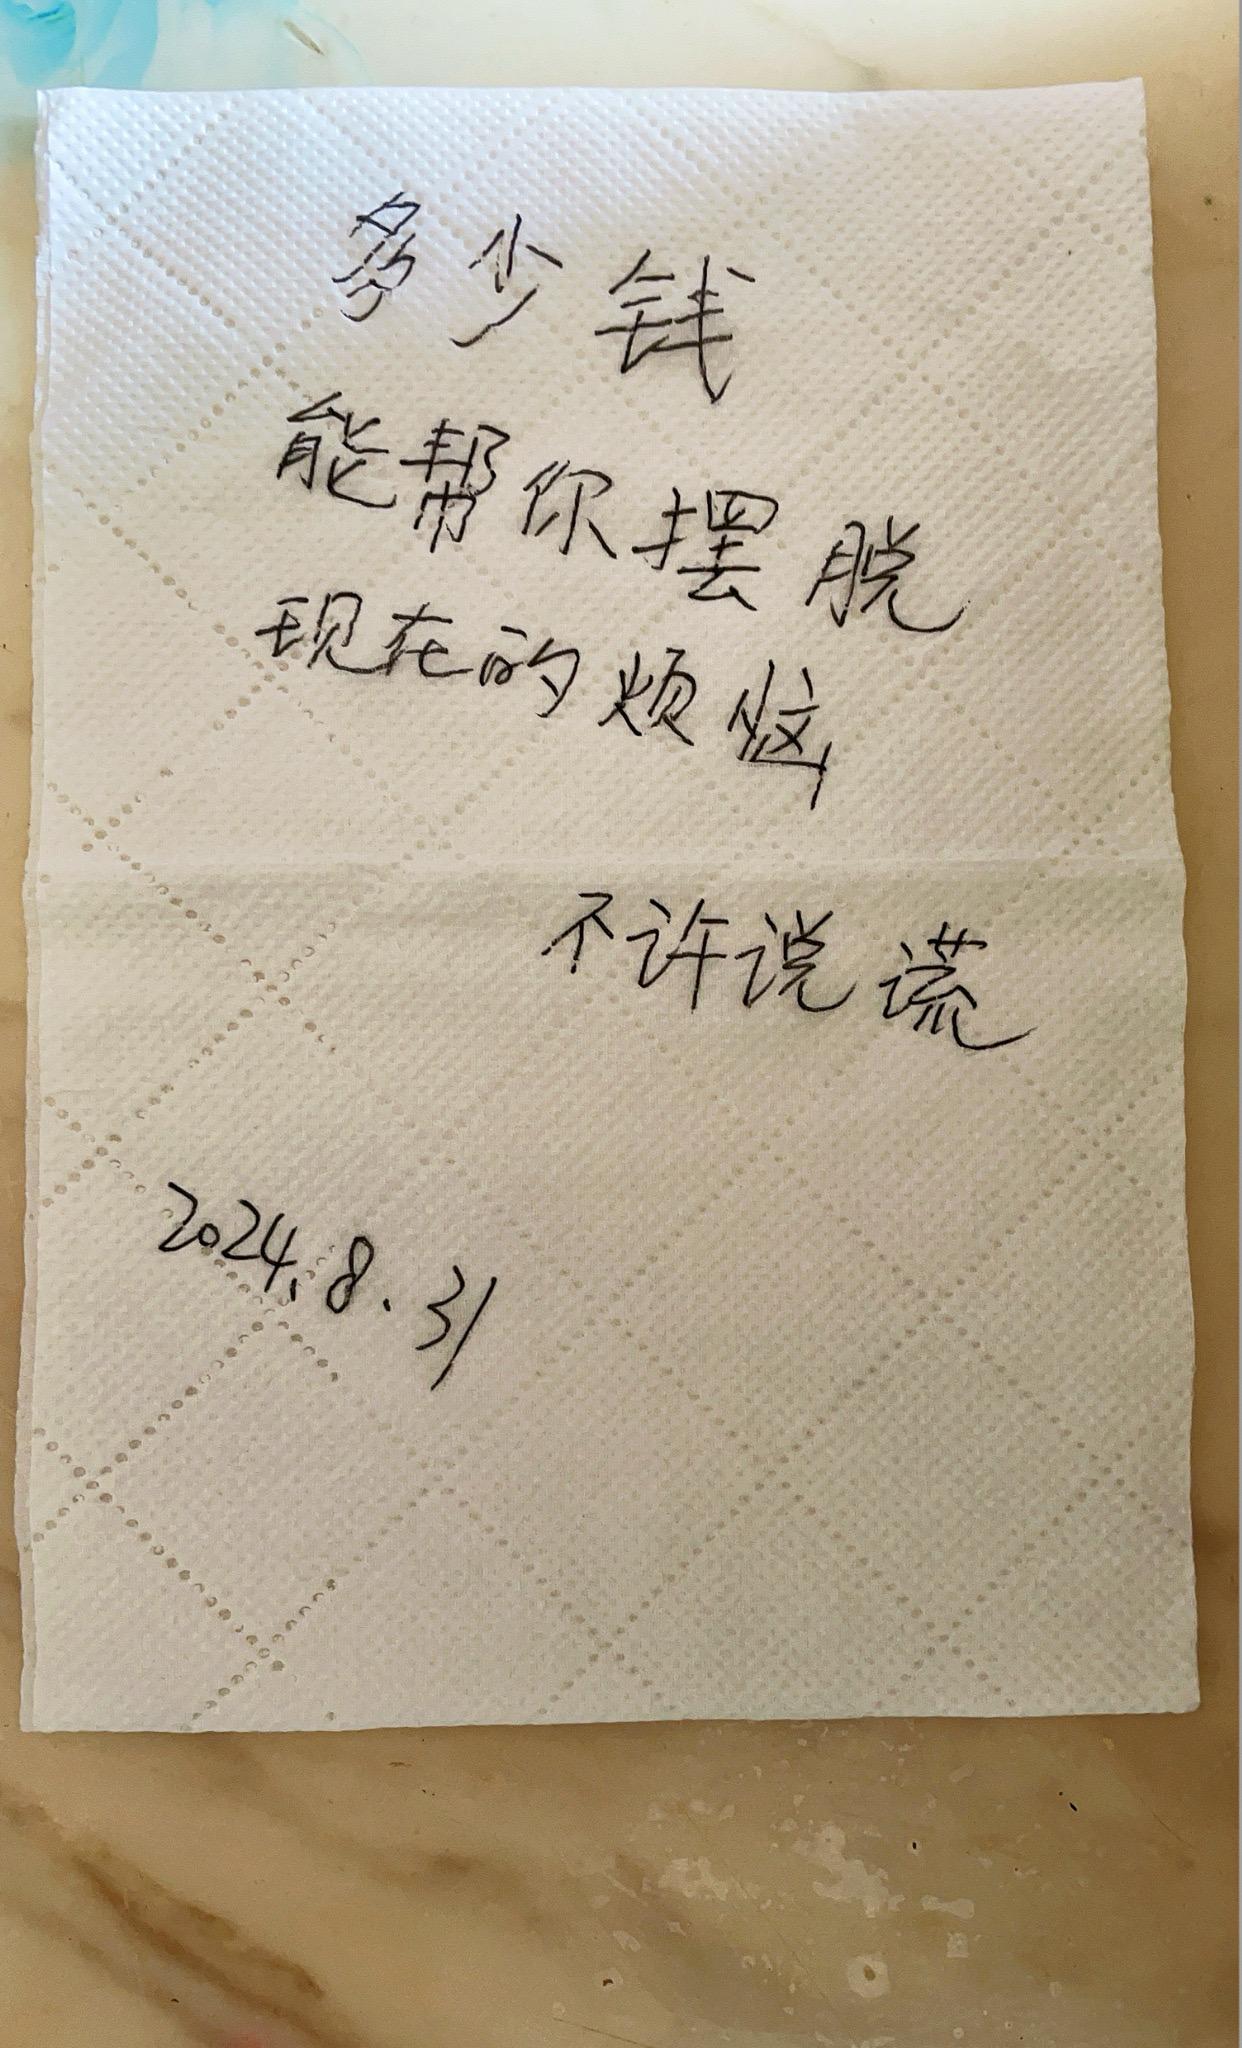 多少钱
能帮你摆脱
现在的烦恼
不许说谎
2024.8.31